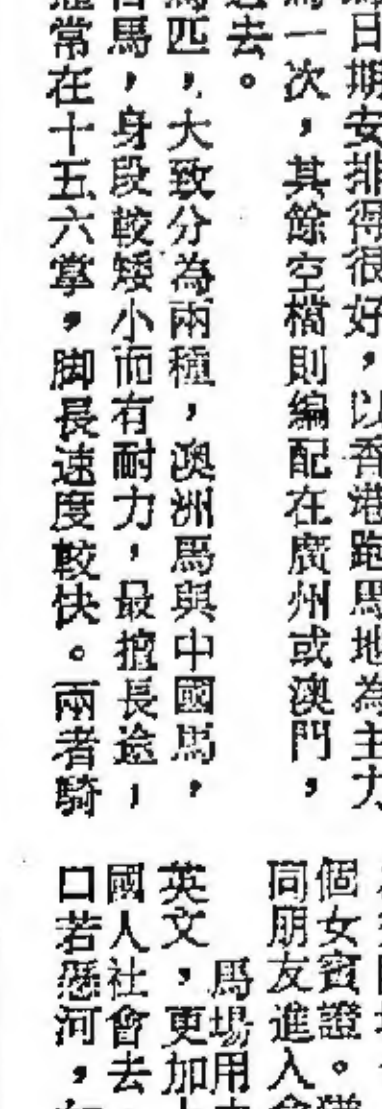 日期安排得很好，以香港跑馬地為主力
一次，其餘空檔則編配在廣州或澳門，
去。
馬匹，大致分為兩種，澳洲馬與中國馬，
馬，身段較矮小而有耐力，最擅長途；
常在十五六掌，脚長速度較快。兩者騎
個女賓證。
同朋友進入會
馬場用
英文，更加
國人社會去
口若懸河，